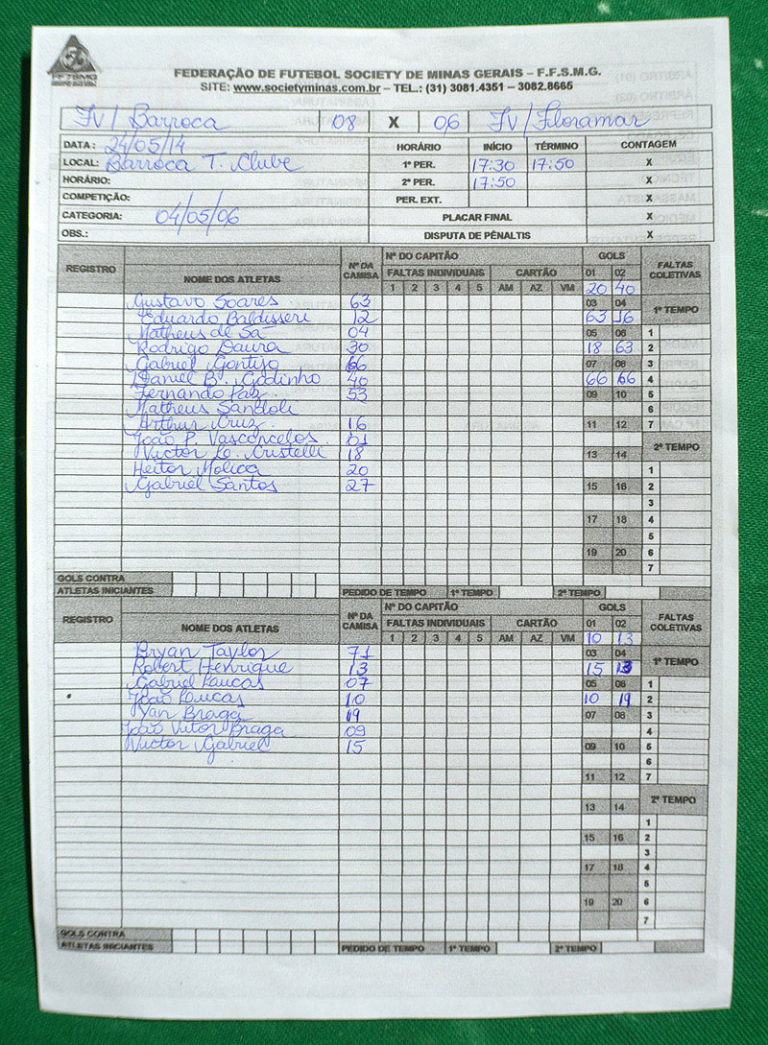 FEDERAÇÃO DE FUTEBOL SOCIETY DE MINAS GERAIS – F.F.S.M.G.
SITE: www.societyminas.com.br – TEL.: (31) 3081.4351 – 3082.8665
FV/ Barroca 08 X 06 FV/ Floramar
DATA: 24/05/14 HORÁRIO INÍCIO TÉRMINO CONTAGEM
LOCAL: Barroca T. Clube 1º PER. 17:30 17:50 X
HORÁRIO: 2º PER. 17:50 X
COMPETIÇÃO: PER. EXT. X
CATEGORIA: 04/05/06 PLACAR FINAL X
OBS.: DISPUTA DE PÊNALTIS X
REGISTRO NOME DOS ATLETAS Nº DA CAMISA Nº DO CAPITÃO GOLS FALTAS COLETIVAS
FALTAS INDIVIDUAIS CARTÃO 01 02
1 2 3 4 5 AM AZ VM 20 40
Gustavo Soares 63 03 04 1º TEMPO
Eduardo Baldisseri 12 63 16
Matheus de Sá 04 05 06 1
Rodrigo Daura 30 18 63 2
Gabriel Gontijo 66 07 08 3
Daniel B. Godinho 40 66 66 4
Fernando Paz 53 09 10 5
Matheus Sandoli 6
Arthur Cruz 16 11 12 7
João P. Vasconcelos 01 2º TEMPO
Victor Le. Cristelli 18 13 14
Heitor Molica 20 1
Gabriel Santos 27 15 16 2
3
17 18 4
5
19 20 6
7
GOLS CONTRA
ATLETAS INICIANTES PEDIDO DE TEMPO 1º TEMPO 2º TEMPO
REGISTRO NOME DOS ATLETAS Nº DA CAMISA Nº DO CAPITÃO GOLS FALTAS COLETIVAS
FALTAS INDIVIDUAIS CARTÃO 01 02
1 2 3 4 5 AM AZ VM 10 13
Bryan Taylor 71 03 04 1º TEMPO
Robert Henrique 13 15 13
Gabriel Lucas 07 05 06 1
João Lucas 10 10 19 2
Yan Braga 19 07 08 3
João Vitor Braga 09 4
Victor Gabriel 15 09 10 5
6
11 12 7
2º TEMPO
13 14
1
15 16 2
3
17 18 4
5
19 20 6
7
GOLS CONTRA
ATLETAS INICIANTES PEDIDO DE TEMPO 1º TEMPO 2º TEMPO